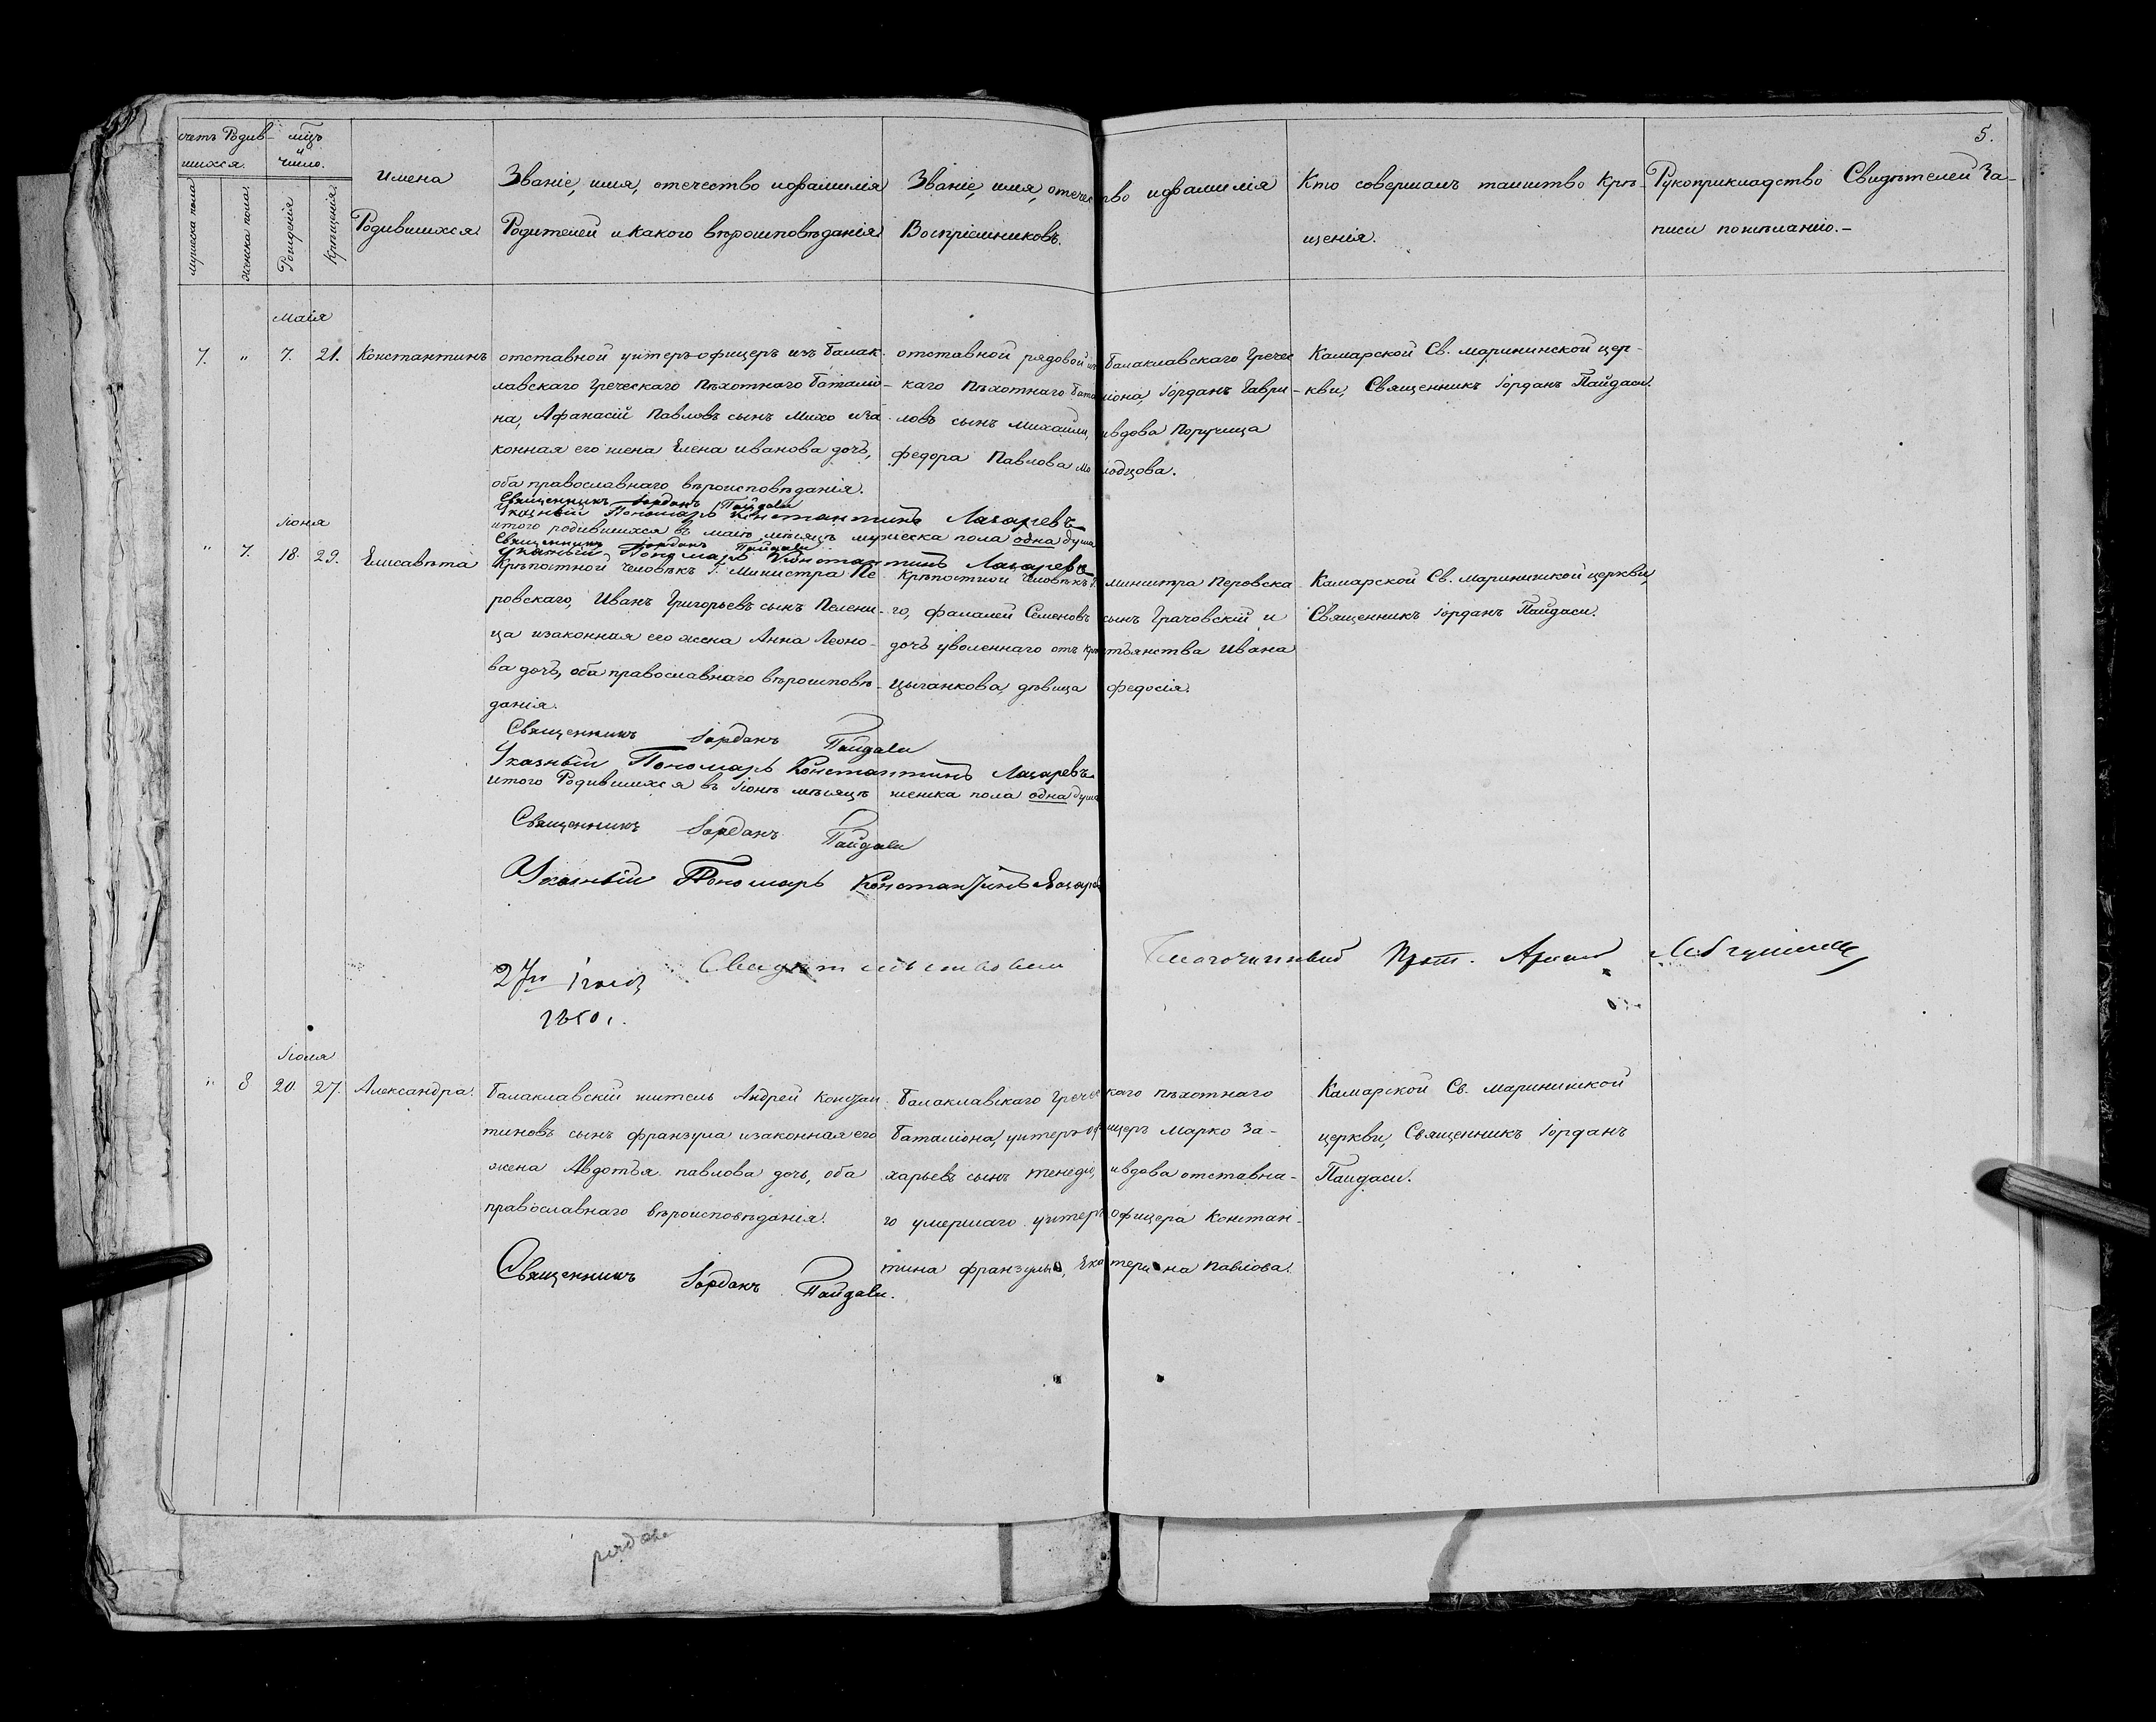 5.
счетъ Родив-
шихся.
мцъ
и
число.
мужеска пола
женска пола
Рожденія
Крещенія
Имена
Родившихся.
Званіе, имя, отечество ифамилія
Родителей и какого вѣроисповѣданія
Званіе, имя, отечество ифамилія
Воспріемниковъ.
Кто совершалъ таинство Кре-
щенія.
Рукоприкладство Свидѣтелей За-
писи пожеланію.-
Маія
7. " 7. 21. Константинъ
отставной унтеръ-офицеръ изъ Балак-
лавскаго Греческаго Пѣхотнаго Баталіо-
на, Афанасій Павловъ сынъ Михо иза-
конная его жена Елена иванова дочь,
оба православнаго вѣроисповѣданія.
отставной рядовой Балаклавскаго Гречес
каго Пѣхотнаго Баталіона, Іорданъ Гаври-
ловъ сынъ Михаили, ивдова Поручица
федора Павлова Молодцова.
Камарской Св. марининской цер-
кви, Священникъ Іорданъ Пайдаси.
Священникъ Іорданъ Пайдаси
Указный Пономарь Константинъ Лазаревъ
итого родившихся въ маію мѣсяцѣ мужеска пола одна душа
Священникъ Іорданъ Пайдаси
Указный Пономарь Константинъ Лазаревъ
Іюня
" 7. 18. 29. Елисавѣта
Крѣпостной человѣкъ Г. Министра Пе-
ровскаго, Иванъ Григорьевъ сынъ Пелени-
ца изаконная его жена Анна Леоно-
ва дочь, оба православнаго вѣроисповѣ-
данія.
Крѣпостной человѣкъ Г. министра Перовска-
го, фалалей Семеновъ сынъ Грачовскій и
дочь уволеннаго отъ крѣстьянства Ивана
Цыганкова, дѣвица федосія.
Камарской Св. Марининской церкви,
Священникъ Іорданъ Пайдаси.
Священникъ Іорданъ Пайдаси
Указный Пономарь Константинъ Лазаревъ
итого Родившихся въ Іюнѣ мѣсяцѣ женска пола одна душа
Священникъ Іорданъ Пайдаси
Указный Пономарь Константинъ Лазарев
27го
1850г.
Свидѣтельствовалъ Благочинный Прот.
Іюля
" 8 20. 27. Александра.
Балаклавскій житель Андрей Констан-
тиновъ сынъ франзула изаконная его
жена Авдотья павлова дочь, оба
православнаго вѣроисповѣданія.
Балаклавскаго Греческаго пѣхотнаго
Баталіона, унтеръ-офицеръ Марко За-
харьевъ сынъ тенедіо, ивдова отставна-
го умершаго унтеръ офицера Констан-
тина франзулы, Екатерина Павлова.
Камарской Св. марининской
церкви, Священникъ Іорданъ
Пайдаси.
Священникъ Іорданъ Пайдаси.